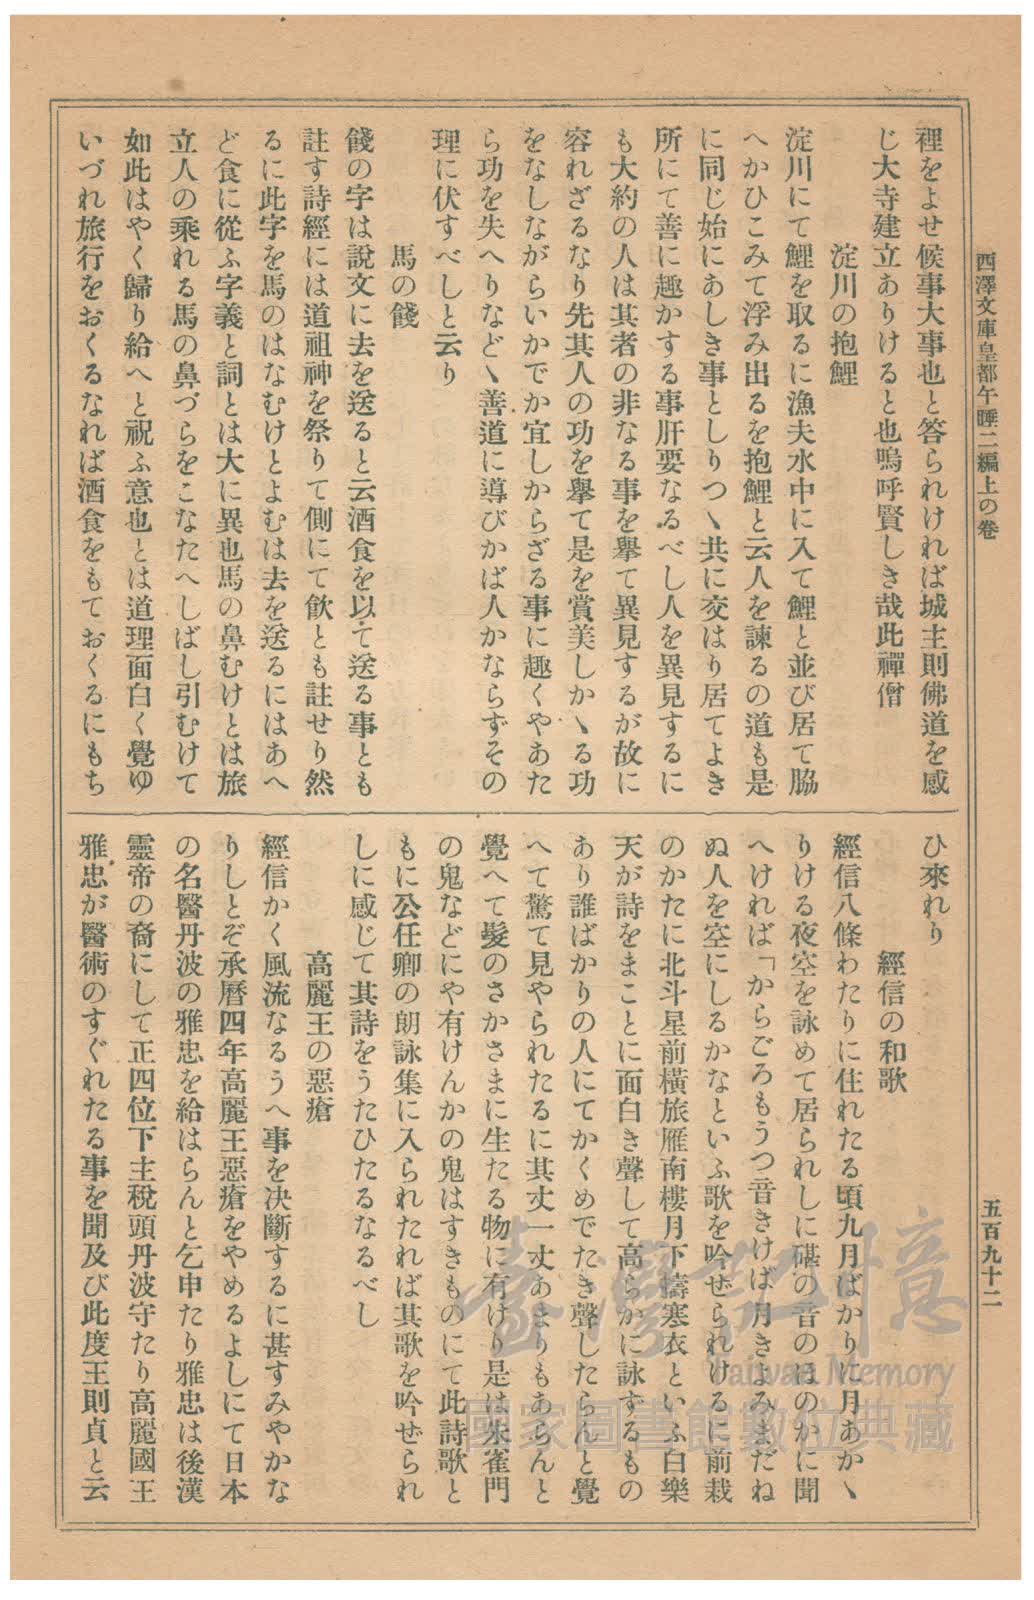 西澤文庫皇都午睡二編上の卷
五百九十二
裡をよせ候事大事也と答られければ城主則佛道を感
じ大寺建立ありけると也嗚呼賢しき哉此禪僧
淀川の抱鯉
淀川にて鯉を取るに漁夫水中に入て鯉と並び居て脇
へかひこみて浮み出るを抱鯉と云人を諫るの道も是
に同じ始にあしき事としりつゝ共に交はり居てよき
所にて善に趣かする事肝要なるべし人を異見するに
も大約の人は其者の非なる事を擧て異見するが故に
容れざるなり先其人の功を擧て是を賞美しかゝる功
をなしながらいかでか宜しからざる事に趣くやあた
ら功を失へりなどゝ善道に導びかば人かならずその
理に伏すべしと云り
馬の餞
餞の字は說文に去を送ると云酒食を以て送る事とも
註す詩經には道祖神を祭りて側にて飮とも註せり然
るに此字を馬のはなむけとよむは去を送るにはあへ
ど食に從ふ字義と詞とは大に異也馬の鼻むけとは旅
立人の乘れる馬の鼻づらをこなたへしばし引むけて
如此はやく歸り給へと祝ふ意也とは道理面白く覺ゆ
いづれ旅行をおくるなれば酒食をもておくるにもち
ひ來れり
經信の和歌
經信八條わたりに住れたる頃九月ばかりに月あかゝ
りける夜空を詠めて居られしに碪の音のほのかに聞
へければ「からごろもうつ音きけば月きよみまだね
ぬ人を空にしるかなといふ歌を吟ぜられけるに前栽
のかたに北斗星前橫旅雁南樓月下擣寒衣といふ白樂
天が詩をまことに面白き聲して高らかに詠ずるもの
あり誰ばかりの人にてかくめでたき聲したらんと覺
へて驚て見やられたるに其丈一丈あまりもあらんと
覺へて髮のさかさまに生たる物に有けり是は朱雀門
の鬼などにや有けんかの鬼はすきものにて此詩歌と
もに公任卿の朗詠集に入られたれば其歌を吟ぜられ
しに感じて其詩をうたひたるなるべし
高麗王の惡瘡
經信かく風流なるうへ事を决斷するに甚すみやかな
りしとぞ承曆四年高麗王惡瘡をやめるよしにて日本
の名醫丹波の雅忠を給はらんと乞申たり雅忠は後漢
靈帝の裔にして正四位下主稅頭丹波守たり高麗國王
雅忠が醫術のすぐれたる事を聞及び此度王則貞と云
臺灣記憶
Taiwan Memory
國家圖書館數位典藏